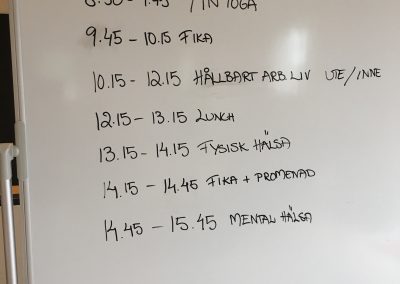 / IN YOGA
9.45 - 10.15 FIKA
10.15 - 12.15 HÅLLBART ARB.LIV UTE/INNE
12.15 - 13.15 LUNCH
13.15 - 14.15 FYSISK HÄLSA
14.15 - 14.45 FIKA + PROMENAD
14.45 - 15.45 MENTAL HÄLSA